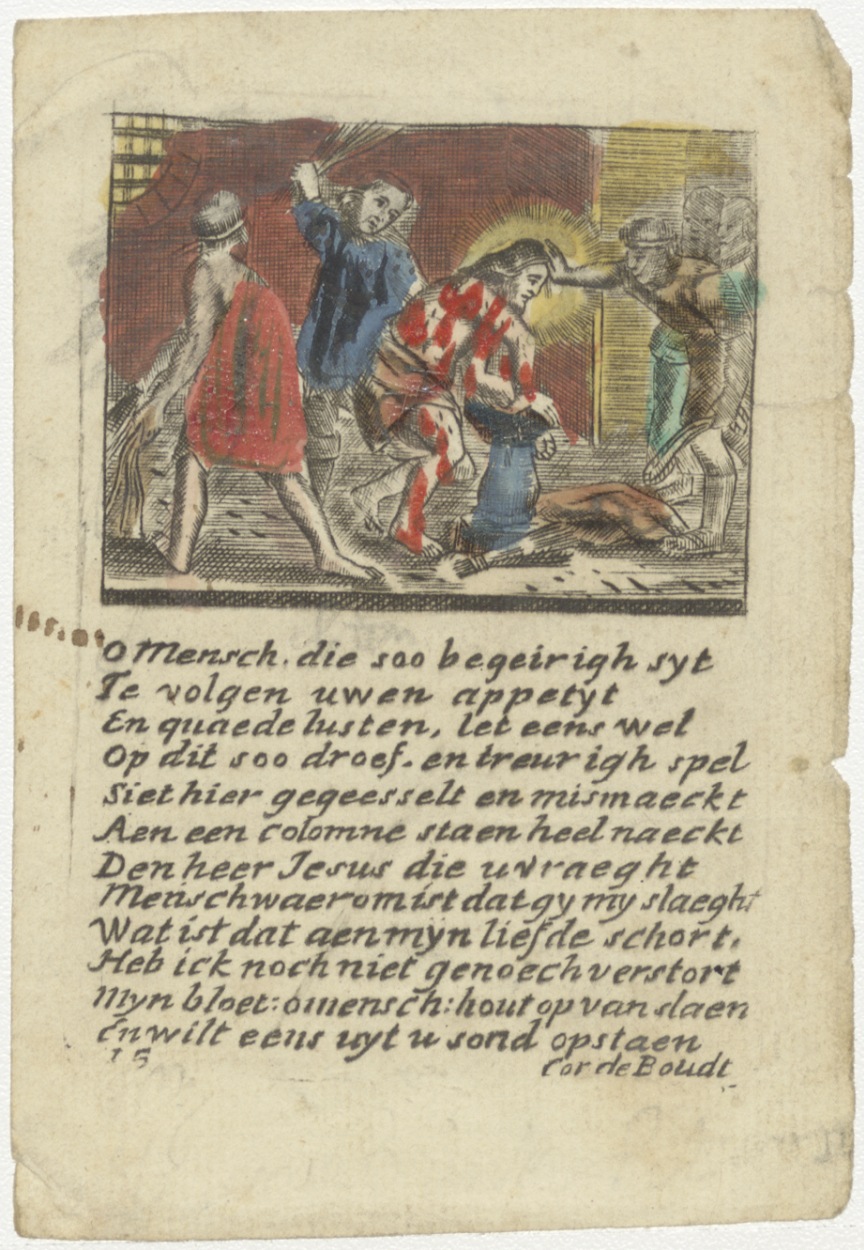 O Mensch. die soo begeirigh syt
Te volgen uwen appetyt
En quaede lusten, let eens wel
Op dit soo droef. en treurigh spel
Siet hier gegeesselt en mismaeckt
Aen een colomne staen heel naeckt
Den heer Jesus die u vraeght
Mensch waerom ist dat gy my slaeght
Wat ist dat aen myn liefde schort.
Heb ick noch niet genoech verstort
Myn bloet: o mensch: hout op van slaen
En wilt eens uyt u sond opstaen
15
Cor de Boudt